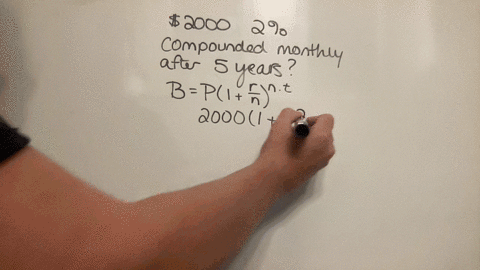 $2000 2%
compounded monthly
after 5 years?
B = P(1 + r/n)^n·t
2000(1 +